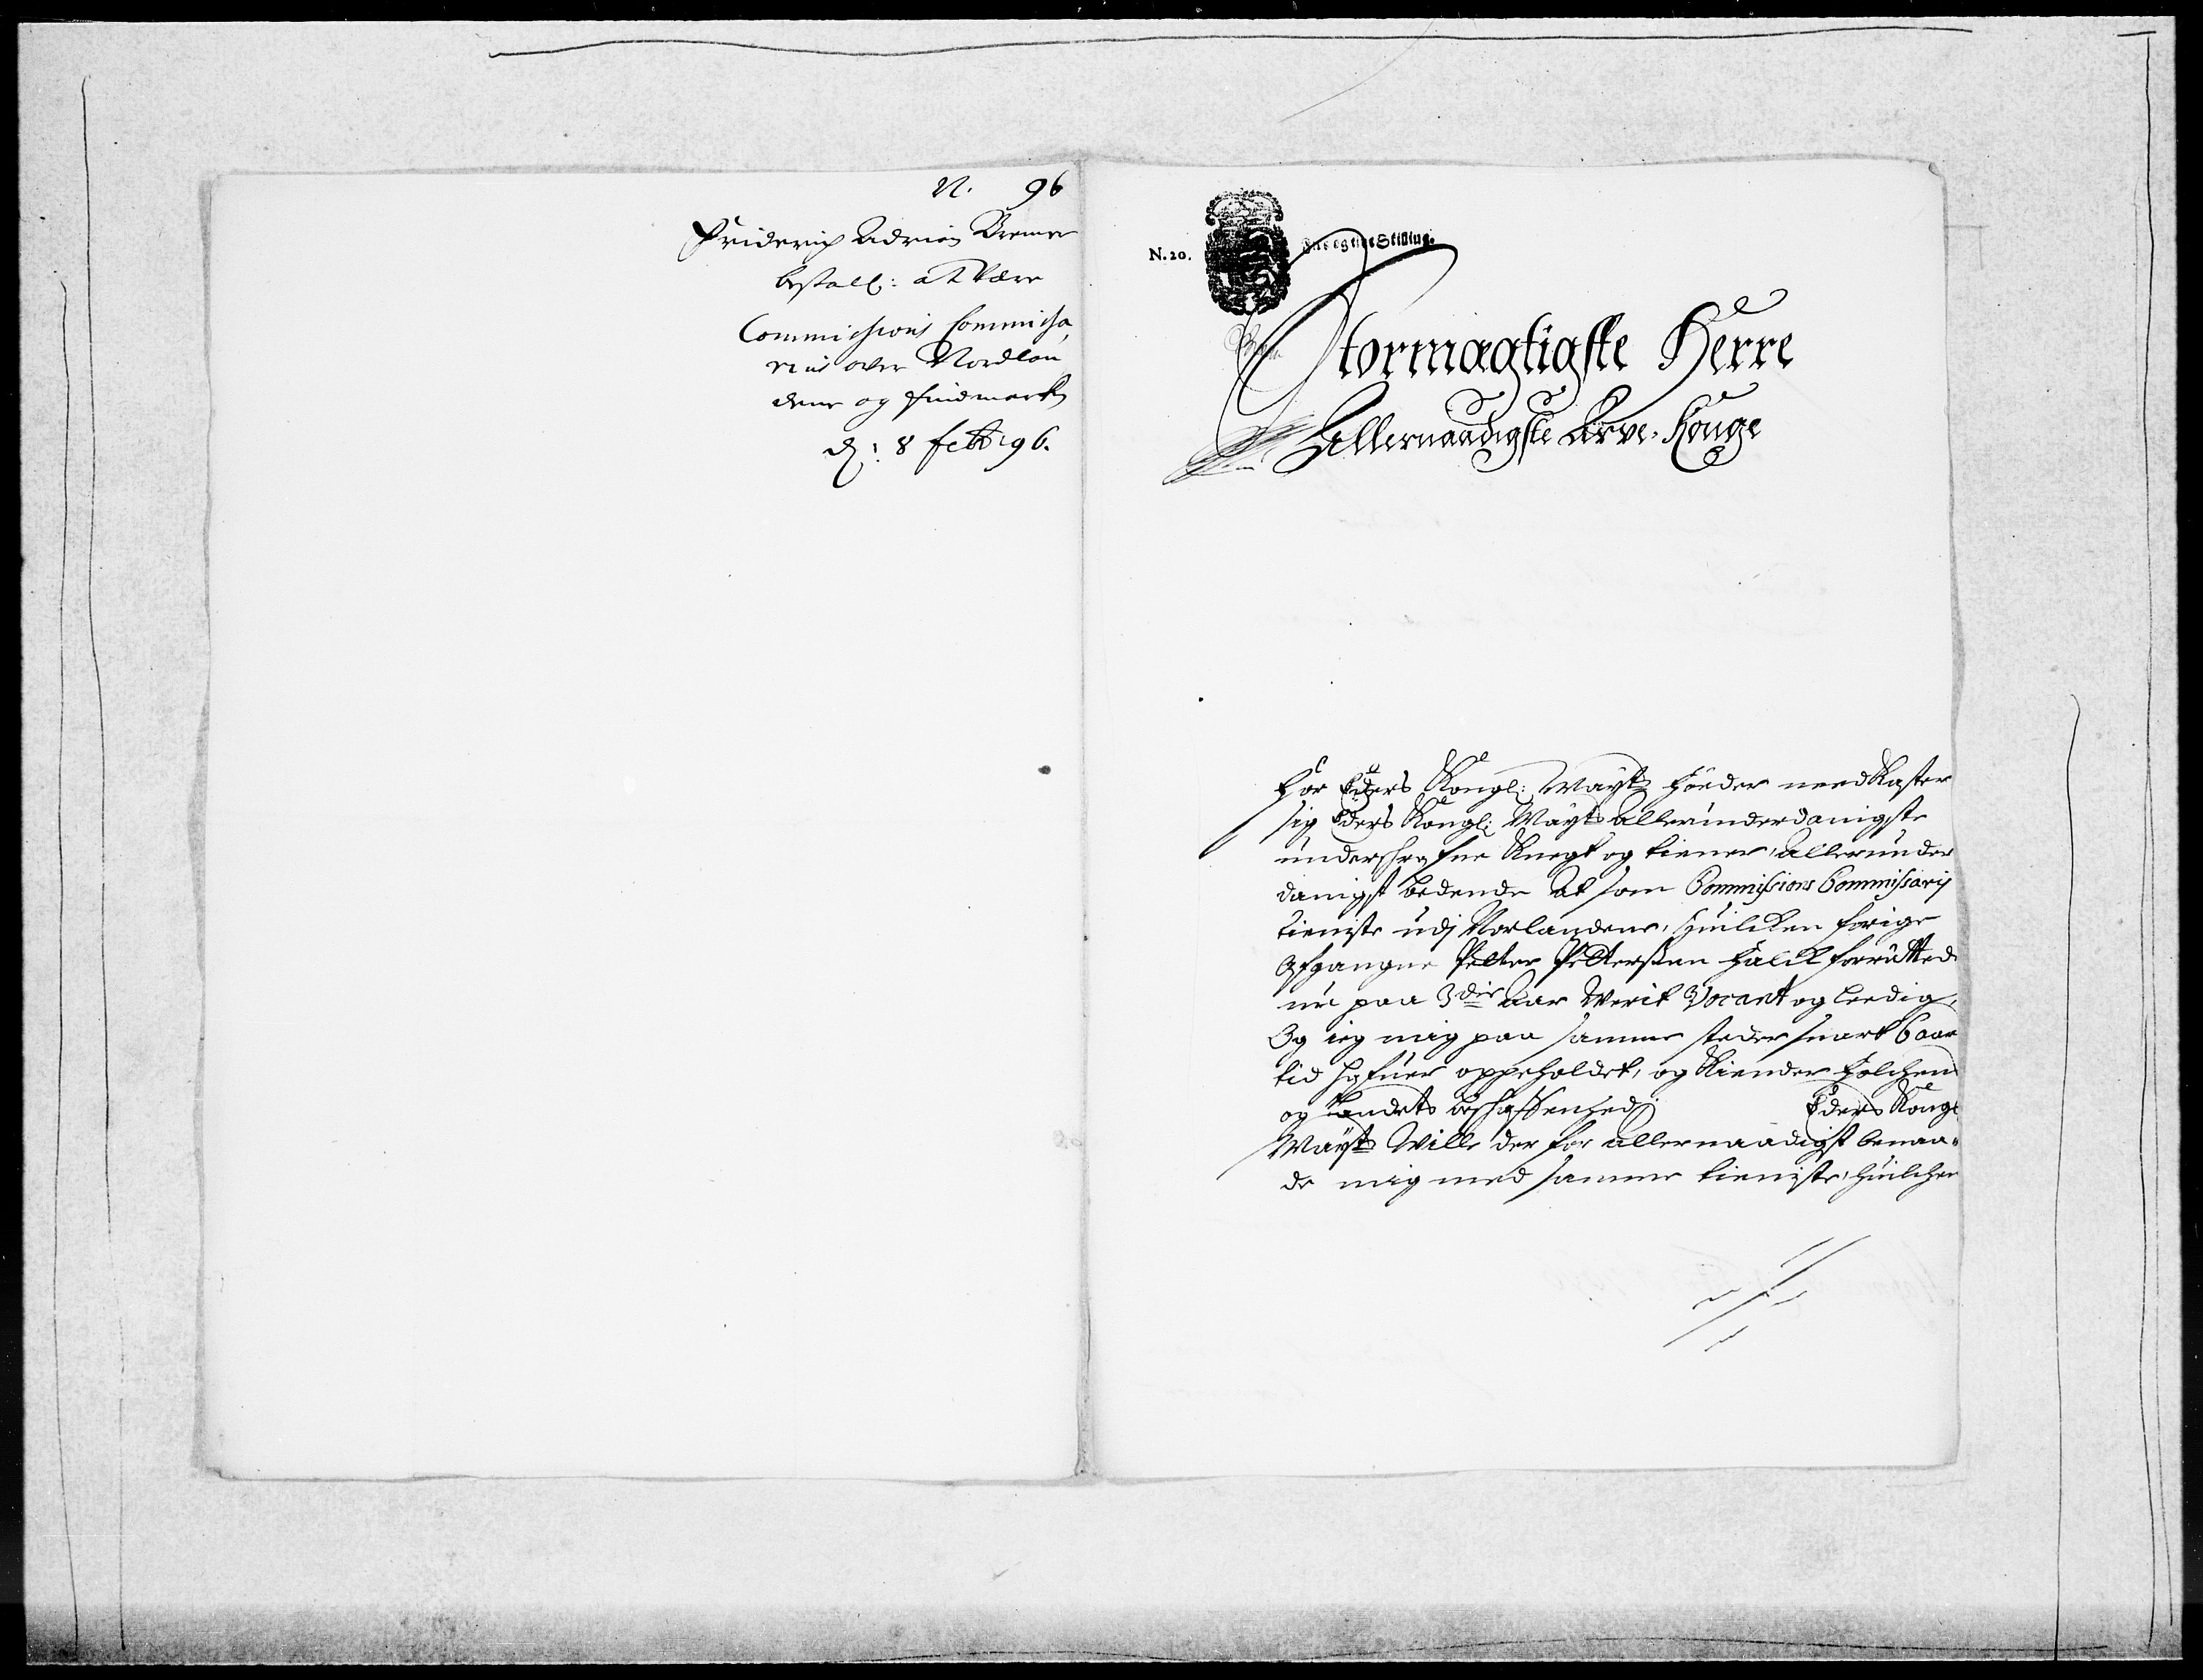 N. 96
Friderich Adrian Bremer
bestall: at være
Commissions Commissa,
rius over Nordlan
dene og Findmarken
d: 8 febr 96.
N. 20.
Stormagtigste Herre
Allernaadigste Arve-Konge
For Eders Kongl: Mayts Föeder needkaster
sig Eders Kongl: Mayts allerunderdanigste
underschrefne Knegt og tiener, allerunder
danigst bedende at som Commissions Commissarij
tieniste udj Norlandene, huilcken forige
Afgangne Petter Pettersen Falck forrætted
nu paa 3die Aar Werit Vacant og leedig,
Og ieg mig paa samme steder snart 6 aar
tid hafuer oppeholdet, og Kiender folchen
og Landets beschaffenhed; Eders Kongl
Mayts Wille der for allernaadigst benaa-
de mig med samme tieniste, huilchen